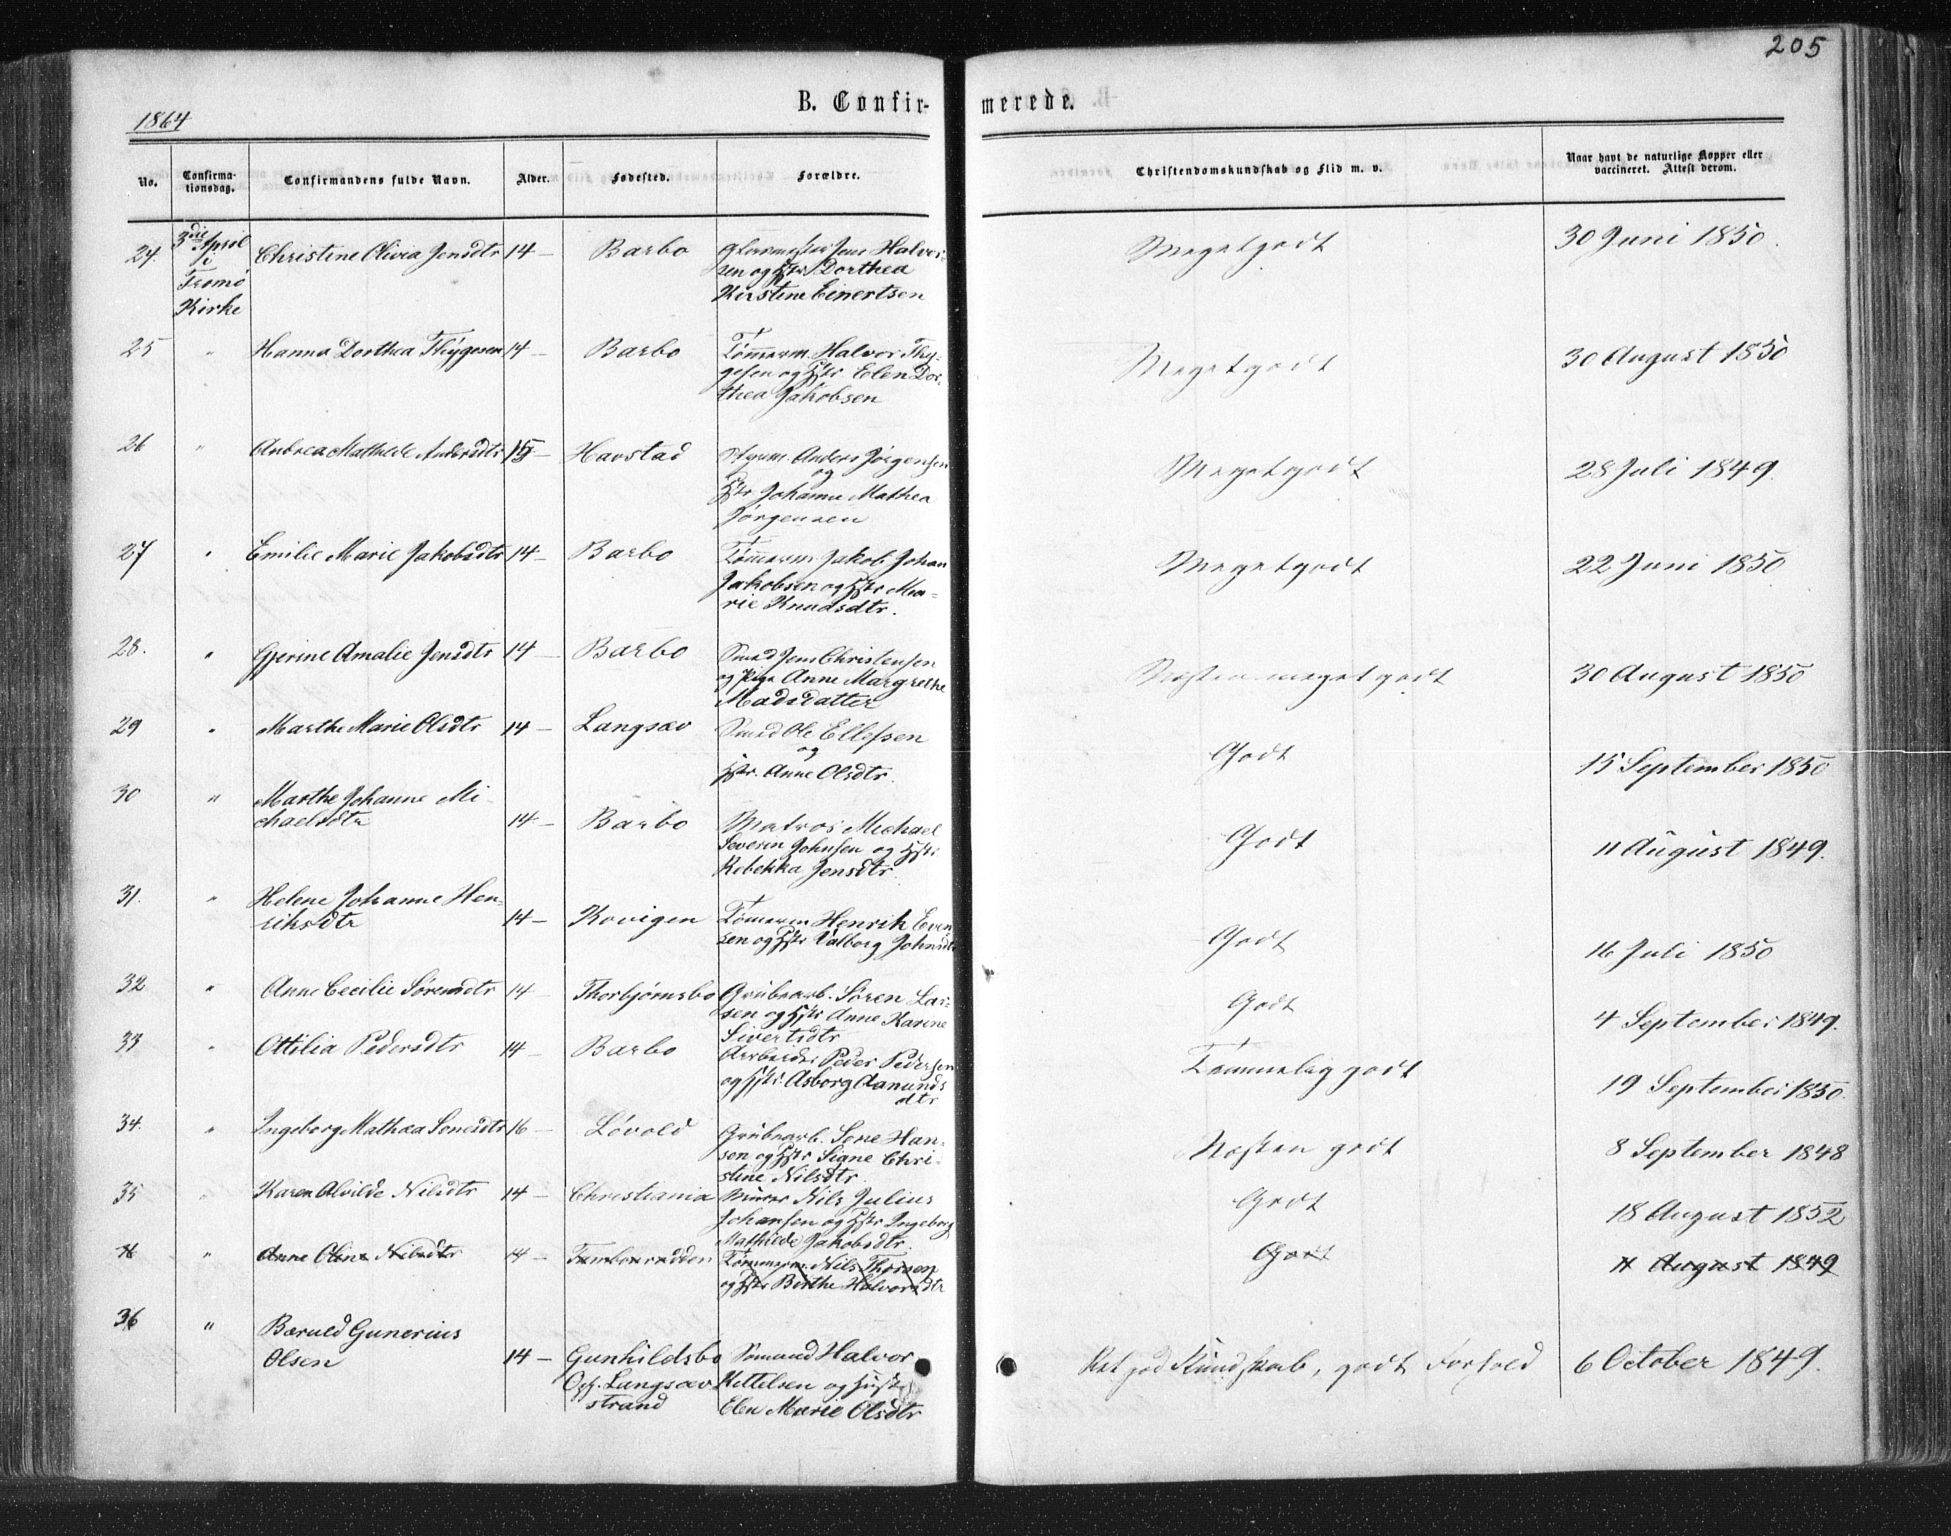 205
1864
B. Confirmerede.
No. Confirmationsdag. Confirmandens fulde Navn. Alder. Fødested. Forældre. Christendomskundskab og Flid m. v. Naar havt de naturlige Kopper eller vaccineret. Attest derom.
24. 3die April i Tromø Kirke Christine Olivia Jensdtr 14 – Barbo Jens Halvorsen og Hstr Dorthea Kirstine Einertsen Meget godt 30 Juni 1850.
25 " Hanna Dorthea Thygesen 14 – Barbo Tømmerm. Halvor Thygesen og Hstr Elen Dorthea Jakobsen Meget godt 30 August 1850
26 " Andrea Mathilde Andersdtr 15 – Havstad Styrm. Anders Jörgensen og Hstr Johanne Mathea Jörgensen Meget godt 28 Juli 1849.
27 " Emilie Marie Jakobsdtr 14 – Barbo Tømmerm. Jakob Johan Jakobsen og Hstr Marie Knudsdtr. Meget godt 22 Juni 1850
28. " Gjerine Amalie Jensdtr 14 – Barbo Smed Jens Christensen og Pige Anne Margrethe Madsdatter Næsten meget godt 30 August 1850
29 " Marthe Marie Olsdtr 14 – Langsæv Smed Ole Ellefsen og Hstr. Anne Olsdtr. Godt 15 September 1850
30 " Marthe Johanne Michaelsdtr 14 – Barbo Matros Michael Severin Johnsen og Hstr Rebekka Jensdtr Godt 11 August 1849.
31. " Helene Johanne Henriksdtr 14 – Kovigen Tømerm Henrik Evensen og Hstr Valborg Johnsdtr Godt 16 Juli 1850
32 " Anne Cecilie Sörensdtr 14 – Thorbjørnsbo Grubearb. Sören Larsen og Hstr Anne Karine Sivertsdtr Godt 4 September 1849.
33 " Ottilia Pedersdtr 14 – Barbo Arbeider Peder Pedersen og Hstr. Asborg Aanundsdtr Temmelig godt 19 September 1850.
34. " Ingeborg Mathea Sonesdtr 16 – Lövold Grubearb. Sone Hansen og Hstr Signe Christine Nilsdtr Næsten godt 8 September 1848
35 " Karen Alvilde Nilsdtr 14 – Christiania Murer Nils Julius Johansen og Hstr Ingeborg Mathilde Jakobsdtr. Godt 18 August 1852
" Anne Oline Nilsdtr 14 – Tømmerm. Nils og Hstr Birthe Halvorsdtr Godt 11 August 1849
36 " Bæruld Gunerius Olsen 14 – Gunhildsbo Opf. Langsæv strand Sömand Halvor Kittelsen og Hustr Elen Marie Olsdtr Ret god Kundskab, godt Forhold 6 October 1849.